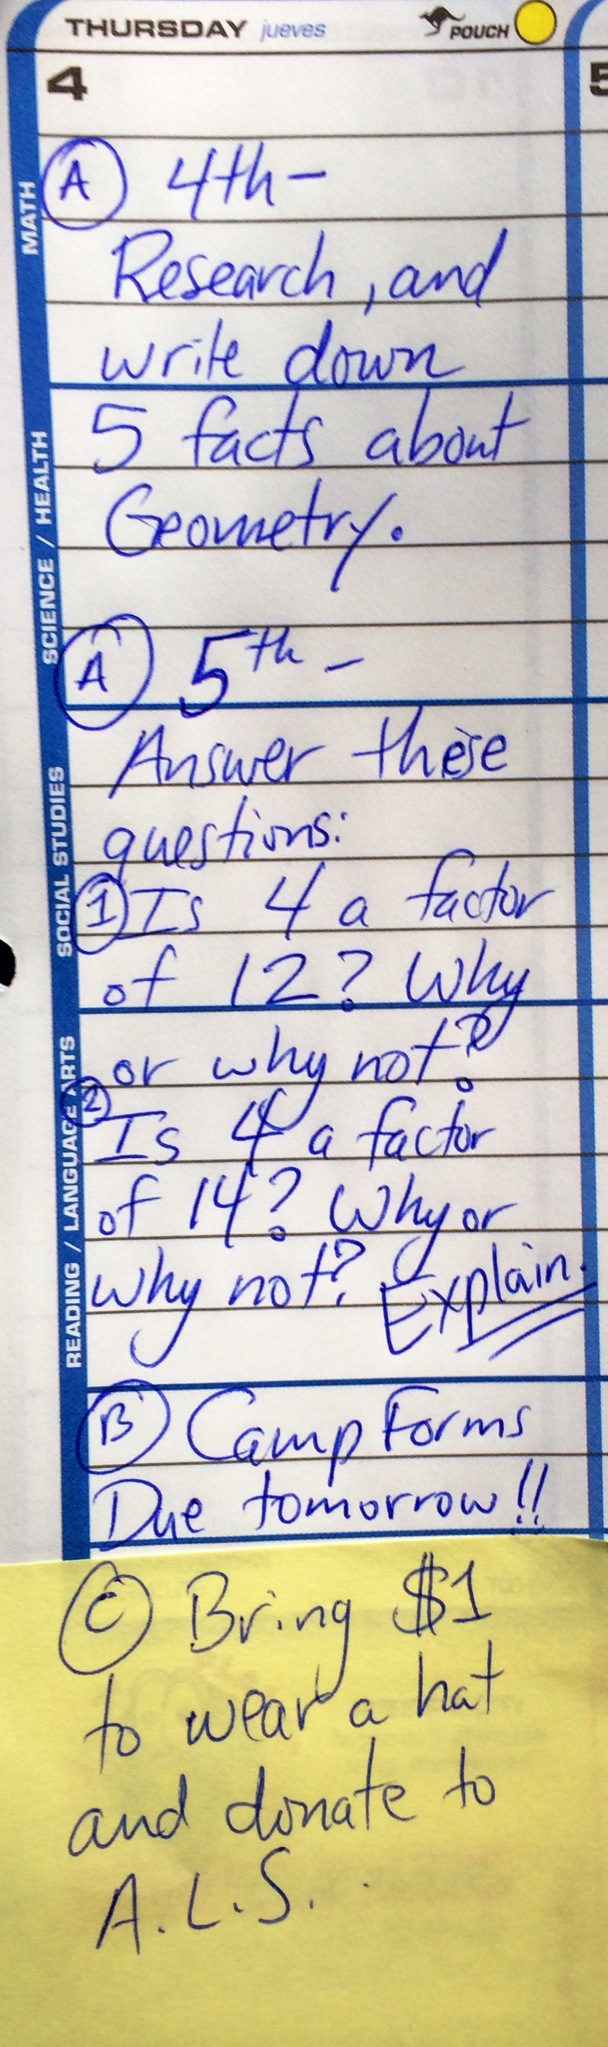 THURSDAY jueves POUCH
4 5
MATH
SCIENCE / HEALTH
SOCIAL STUDIES
READING / LANGUAGE ARTS
A 4th-
Research, and
write down
5 facts about
Geometry.
A 5th-
Answer these
questions:
1 Is 4 a factor
of 12? Why
or why not?
2 Is 4 a factor
of 14? Why or
why not? Explain.
B Camp Forms
Due tomorrow!!
C Bring $1
to wear a hat
and donate to
A.L.S.